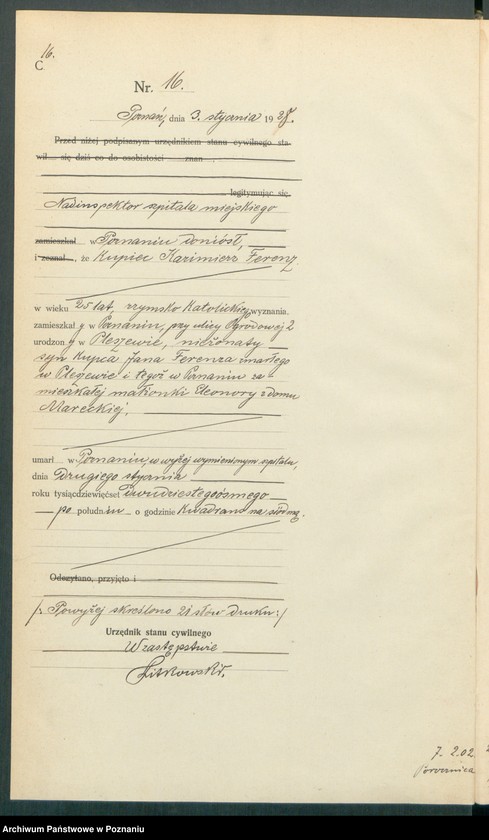 16.
C
Nr. 16.
Poznań, dnia 3. stycznia 1928.
Przed niżej podpisanym urzędnikiem stanu cywilnego sta-
wił się dziś co do osobistości znan
legitymując się.
Nadinspektor szpitala miejskiego
zamieszkał w Poznaniu doniósł,
i zeznał, że kupiec Kazimierz Ferenz
w wieku 25 lat, rzymsko katolickiego wyznania
zamieszkały w Poznaniu, przy ulicy Ogrodowej 2
urodzony w Pleszewie, nieżonaty
syn kupca Jana Ferenza zmarłego
w Pleszewie i tegoż w Poznaniu za-
mieszkałej małżonki Eleonory z domu
Mareckiej,
umarł w Poznaniu, w wyżej wymienionym szpitalu,
dnia drugiego stycznia
roku tysiącdziewięćset dwudziestegoósmego
po połudn.iu o godzinie kwadrans na siódmą.
Odczytano, przyjęto i
/: Powyżej skreślono 21 słów druku :/
Urzędnik stanu cywilnego
W zastępstwie
Litkowski.
7. 2.02
Archiwum Państwowe w Poznaniu